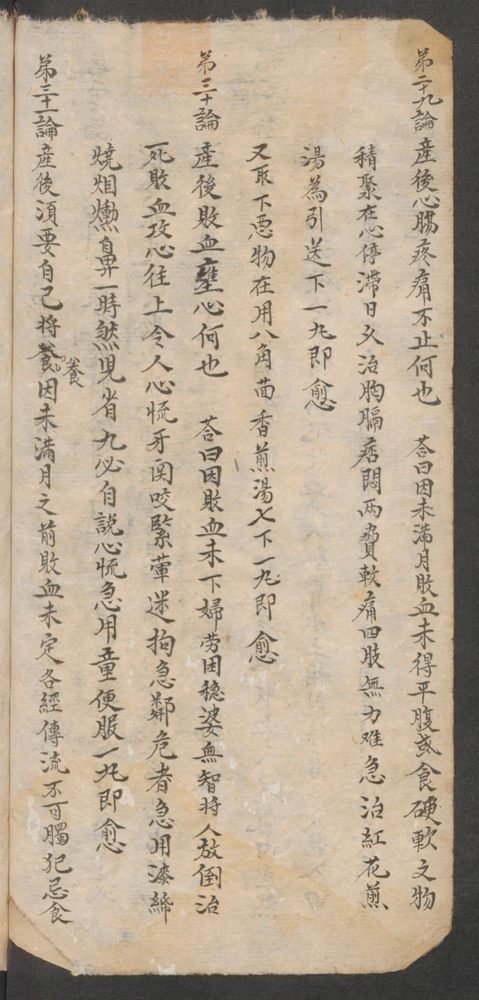 第二十九論 產後心腸疼痛不止何也 荅曰因未滿月敗血未得平腹或食硬軟之物
積聚在心停滯日久治胸膈痞悶兩脅較痛四肢無力难急治紅花煎
湯為引送下一丸即愈
又取下惡物在用八角茴香煎湯七下一丸即愈
第三十論 產後敗血壅心何也 荅曰因敗血未下婦劳困穏婆無智将人放倒治
死敗血攻心往上令人心慌牙関咬緊暈迷拘急鄰危者急用漆綿
燒烟燻鼻一時然見省九必自説心慌急用童便服一丸即愈
第三十一論 產後須要自己将養因未滿月之前敗血未定各經傳流不可觸犯忌食
養